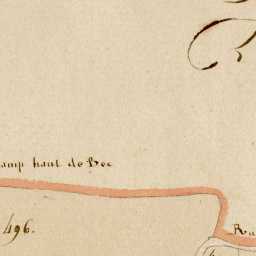 amp haut de Bec
496.
Ru